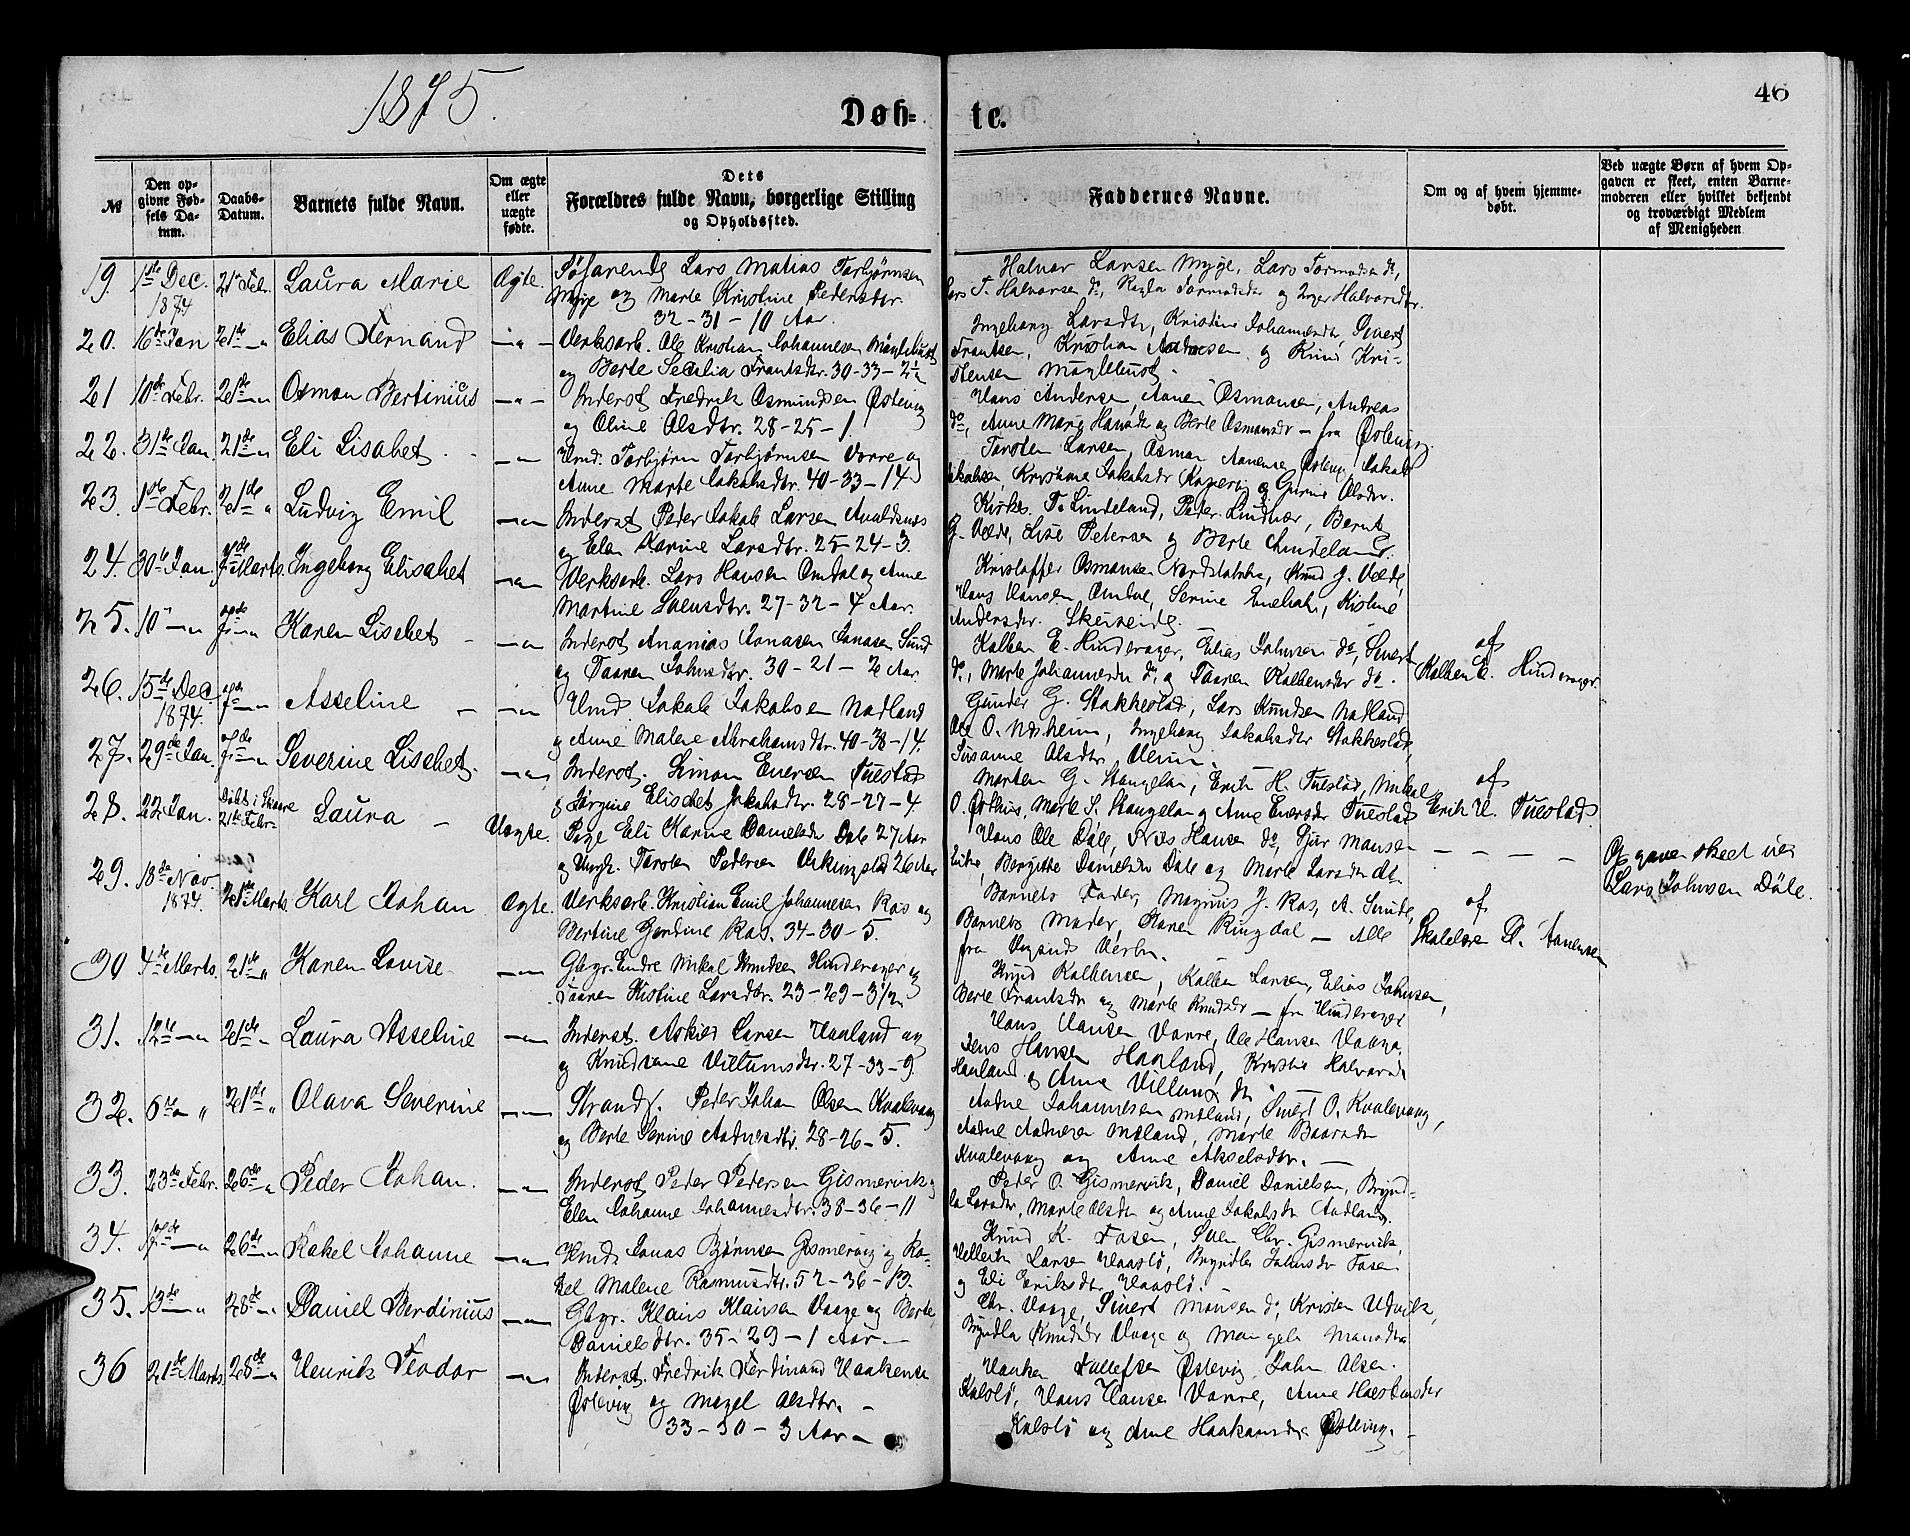 1875.
Døb-
te.
46
№
Den op-
givne Fød-
sels Da-
tum.
Daabs-
Datum.
Barnets fulde Navn.
Om ægte
eller
uægte
fødte.
Dets
Forældres fulde Navn, borgerlige Stilling
og Opholdssted.
Faddernes Navne.
Om og af hvem hjemme-
døbt.
Ved uægte Børn af hvem Op-
gaven er skeet, enten Barne-
moderen eller hvilket bekjendt
og troværdigt Medlem
af Menigheden
19. 1ste Dec. 1874 21de Febr. Laura Marie Ægte.
Søfarende Lars Matias Torbjørnsen
Myge og Marte Kristine Pedersdtr.
32-31-10 Aar.
Halvor Larsen Myge, Lars Tormodsen do,
Lars T. Halvorsen do, Ragla Tormodsdtr og Inger Halvorsdtr.
20. 16de Jan 21de — " Elias Fernand — " —
Verksarb. Ole Kristian Johannesen
og Berte Secelia Frantsdtr. 30-33-2½
Ingeborg Larsdtr, Kristine Johannesdtr, Sivert
Frantsen, Kristian Andresen og Knud Kri-
stensen
21 10de Febr. 21de — " Osmon Bertinius — " —
Inderst Fredrik Osmundsen Østevig
og Oline Olsdtr. 28-25-1.
Hans Andersen, Aanen Osmonsen, Andreas
do, Anne Marie Hansdtr og Berte Osmonsdr — fra Østevig.
22. 31te Jan. 21de — " Eli Lisabet. — " —
Hmd. Torbjørn Torbjørnsen Vorre og
Anne Marte Jakobsdtr. 40-33-14
Torsten Larsen, Osmon Aanensen Østevig, Jakob
Jakobsen, Kristiane Jakobsdr og Gurine Olsdr.
23. 1ste Febr. 21de " Ludvig Emil — " —
Inderst Peder Jakob Larsen Avaldsnes
og Elen Karine Larsdtr. 25-24-3.
Kirkes. T. Lindeland, Peder Lindtner, Bernt
G. Velde, Lise Petersen og Berte Lindeland.
24. 30te Jan. 7de Marts. Ingeborg Elisabet — " —
Verksarb. Lars Hansen Omdal og Anne
Martine Svensdtr. 27-32-4 Aar.
Kristoffer Osmonsen Nordstokke, Knud G. Velde,
Hans Hansen Omdal, Serine, Kistine
Andersdr. Skeiseide.
25. 10 — " 7de — " Karen Lisebet — " —
Inderst Ananias Jonasen Jonasen Sund
og Taaren Johnsdtr. 30-21-2 Aar
Kolben E. Hinderager, Elias Johnsen do, Sivert
do, Marte Johannesdr do, og Taaren Kolbensdr do.
af
Kolben E. Hinderager
26. 15de Dec. 1874. 7de — " Asseline — " —
Hmd. Jakob Jakobsen Nadland
og Anne Malene Abrahamsdtr. 40-38-14.
Gunder G. Stakkestad, Lars Knudsen Nadland
Ole O. Nesheim, Ingeborg Jakobsdtr Stakkestad,
Susanne Olsdtr
27. 29de Jan. 7de — " Severine Lisebet. — " —
Inderst. Simon Eversen Tuestad
og Jørgine Elisebet Jakobsdtr. 28-27-4
Morten G. Stangeland, Erik H. Tuestad, Mikal
O. Østhus, Marte S. Stangelan og Anne Eversdr Tuestad
af
Erik H. Tuestad
28. 22 Jan. Døbt i Skaare 21de Febr. Laura — Uægte.
Pige Eli Karine Danielsdr Døle 27 Aar
og Ungk. Torsten Pedersen Vikingstad 26 Aar
Hans Ole Døle, Nils Hansen do, Sjur Monsen
Eike, Borgitte Danielsdr Døle og Marte Larsdr do.
— — — —
Opgaven skeet ved
Lars Johnsen Døle.
29. 18de Nov. 1874. 21de Marts. Karl Johan Ægte.
Verksarb. Kristian Emil Johannesen Ros og
Bertine Gjerdine Ros. 34-30-5.
Barnets Fader, Magnus J. Ros, A. Sunde,
Barnets Moder, Karen Ringdal — Alle
fra Vigsnes Verk.
af
Skolelærer D. Aanensen
30 4de Marts. 21de " Karen Lovise — " —
Gbgr. Endre Mikal Knudsen Hinderager og
Taaren Kistine Larsdtr. 23-29-3½
Knud Kolbensen, Kolben Larsen, Elias Johnsen,
Berte Frantsdr og Marte Knudsdr — fra Hinderager
31. 12te — " 21de — " Laura Asseline — " —
Inderst. Askild Larsen Haaland og
og Knudsene Villumsdtr. 27-33-9
Hans Hansen Vorre, Ole Hansen Vaaga,
Jens Hansen Haaland, Kristie Halvorsdr
Haaland og Anne Villumsdr do
32. 6te — " " 21de " Olava Severine — " —
Strands. Peder Johan Olsen Kvalevaag
og Berte Serine Aadnesdtr. 28-26-5.
Aadne Johannesen Meland, Sivert O. Kvalevaag,
Aadne Aadnesen Meland, Marte Baardsdr
Kvalevaag og Anne Akselsdtr. —
33. 23de Febr. 26de — " Peder Johan. — " —
Inderst Peder Pedersen Gismervik og
Elen Johanne Johannesdtr. 38-36-11
Peder O. Gismervik, Daniel Danielsen, Brynd-
la Larsdr, Marte Olsdtr og Anne Jakobsdr Aadland.
34. 7de — " 26de — " Rakel Johanne — " —
Hmd. Jonas Bjørnsen Gismervig og Ra-
kel Malene Rasmusdtr. 52-36-13.
Knud K. Fosen, Sven Chr. Gismervik,
Larsen Vaaslø, Bryndla Johnsdr Fosen
og Eli Eriksdtr Vaaslø. —
35. 13de — " 28de — " Daniel Berdinius — " —
Gbgr. Klaus Klausen Vaage og Berte
Danielsdtr. 35-29-1 Aar —
Chr. Vaage, Sivert Monsen do, Kristen Udvik,
Bryndla Knudsdr Vaage og Mangela Monsdtr
36 21de Marts. 28de — " Henrik Teodor — " —
Inderst. Fredrik Ferdinand Haakonsen
Østevig og Magel Olsdtr. —
33-30-3 Aar —
Haakon Tollefsen Østevig, John Olsen
Kolstø, Hans Hansen Vorre, Anne
Kolstø og Anne Haakonsdr Østevig. —